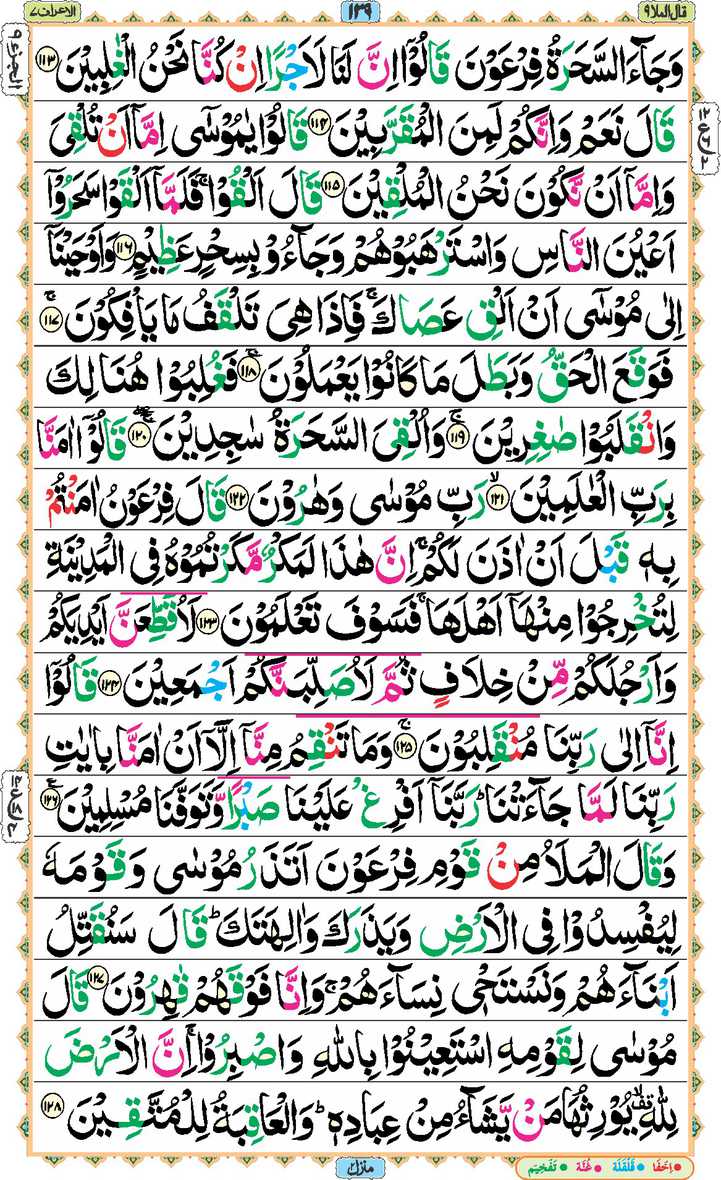 قال الملا ٩
١٣٩
الاعراف ٧
وَجَآءَ السَّحَرَةُ فِرْعَوْنَ قَالُوْۤا اِنَّ لَنَا لَاَجْرًا اِنْ كُنَّا نَحْنُ الْغٰلِبِيْنَ ﴿۱۱۳﴾
قَالَ نَعَمْ وَاِنَّكُمْ لَمِنَ الْمُقَرَّبِيْنَ ﴿۱۱۴﴾ قَالُوْا يٰمُوْسٰۤى اِمَّاۤ اَنْ تُلْقِىَ
وَاِمَّاۤ اَنْ نَّكُوْنَ نَحْنُ الْمُلْقِيْنَ ﴿۱۱۵﴾ قَالَ اَلْقُوْا ۚ فَلَمَّاۤ اَلْقَوْا سَحَرُوْۤا
اَعْيُنَ النَّاسِ وَاسْتَرْهَبُوْهُمْ وَجَآءُوْ بِسِحْرٍ عَظِيْمٍ ﴿۱۱۶﴾ وَاَوْحَيْنَاۤ
اِلٰى مُوْسٰۤى اَنْ اَلْقِ عَصَاكَ ۚ فَاِذَا هِىَ تَلْقَفُ مَا يَاْفِكُوْنَ ۚ ﴿۱۱۷﴾
فَوَقَعَ الْحَقُّ وَبَطَلَ مَا كَانُوْا يَعْمَلُوْنَ ۚ ﴿۱۱۸﴾ فَغُلِبُوْا هُنَالِكَ
وَانْقَلَبُوْا صٰغِرِيْنَ ۚ ﴿۱۱۹﴾ وَاُلْقِىَ السَّحَرَةُ سٰجِدِيْنَ ۚ ﴿۱۲۰﴾ قَالُوْۤا اٰمَنَّا
بِرَبِّ الْعٰلَمِيْنَ ۙ ﴿۱۲۱﴾ رَبِّ مُوْسٰى وَهٰرُوْنَ ﴿۱۲۲﴾ قَالَ فِرْعَوْنُ اٰمَنْتُمْ
بِهٖ قَبْلَ اَنْ اٰذَنَ لَكُمْ ۚ اِنَّ هٰذَا لَمَكْرٌ مَّكَرْتُمُوْهُ فِى الْمَدِيْنَةِ
لِتُخْرِجُوْا مِنْهَاۤ اَهْلَهَا ۚ فَسَوْفَ تَعْلَمُوْنَ ﴿۱۲۳﴾ لَاُقَطِّعَنَّ اَيْدِيَكُمْ
وَاَرْجُلَكُمْ مِّنْ خِلَافٍ ثُمَّ لَاُصَلِّبَنَّكُمْ اَجْمَعِيْنَ ﴿۱۲۴﴾ قَالُوْۤا
اِنَّاۤ اِلٰى رَبِّنَا مُنْقَلِبُوْنَ ۚ ﴿۱۲۵﴾ وَمَا تَنْقِمُ مِنَّاۤ اِلَّاۤ اَنْ اٰمَنَّا بِاٰيٰتِ
رَبِّنَا لَمَّا جَآءَتْنَا ؕ رَبَّنَاۤ اَفْرِغْ عَلَيْنَا صَبْرًا وَّتَوَفَّنَا مُسْلِمِيْنَ ﴿۱۲۶﴾
وَقَالَ الْمَلَاُ مِنْ قَوْمِ فِرْعَوْنَ اَتَذَرُ مُوْسٰى وَقَوْمَهٗ
لِيُفْسِدُوْا فِى الْاَرْضِ وَيَذَرَكَ وَاٰلِهَتَكَ ؕ قَالَ سَنُقَتِّلُ
اَبْنَآءَهُمْ وَنَسْتَحْىٖ نِسَآءَهُمْ ۚ وَاِنَّا فَوْقَهُمْ قٰهِرُوْنَ ﴿۱۲۷﴾ قَالَ
مُوْسٰى لِقَوْمِهِ اسْتَعِيْنُوْا بِاللّٰهِ وَاصْبِرُوْا ۚ اِنَّ الْاَرْضَ
لِلّٰهِ ۙ يُوْرِثُهَا مَنْ يَّشَآءُ مِنْ عِبَادِهٖ ؕ وَالْعَاقِبَةُ لِلْمُتَّقِيْنَ ﴿۱۲۸﴾
منزل ٢
اخفا قلقلة غنة تفخيم